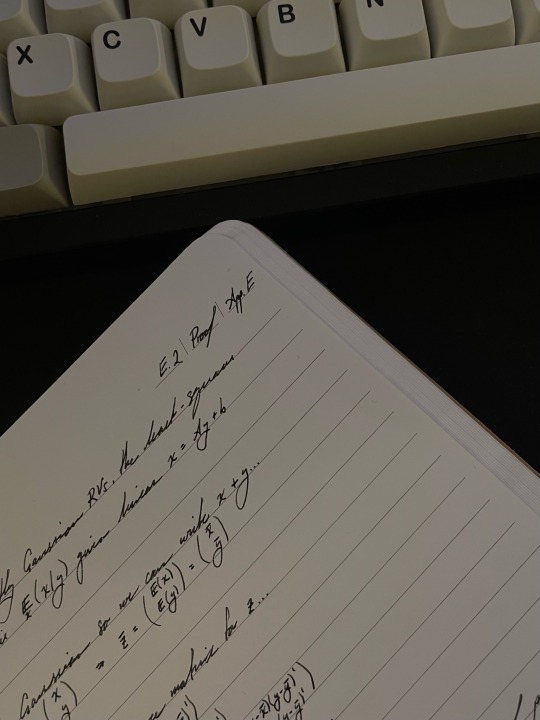 X C V B N
E.2 | Proof | App. E
Gaussian RVs, the least-squares
E(x|y) given linear x = Ay + b
Gaussian so we can write x + y...
(x y) ⇒ z̄ = (E(x) E(y)) = (x̄ ȳ)
matrix for z...
x̄)(y-ȳ)'
(y-ȳ)'